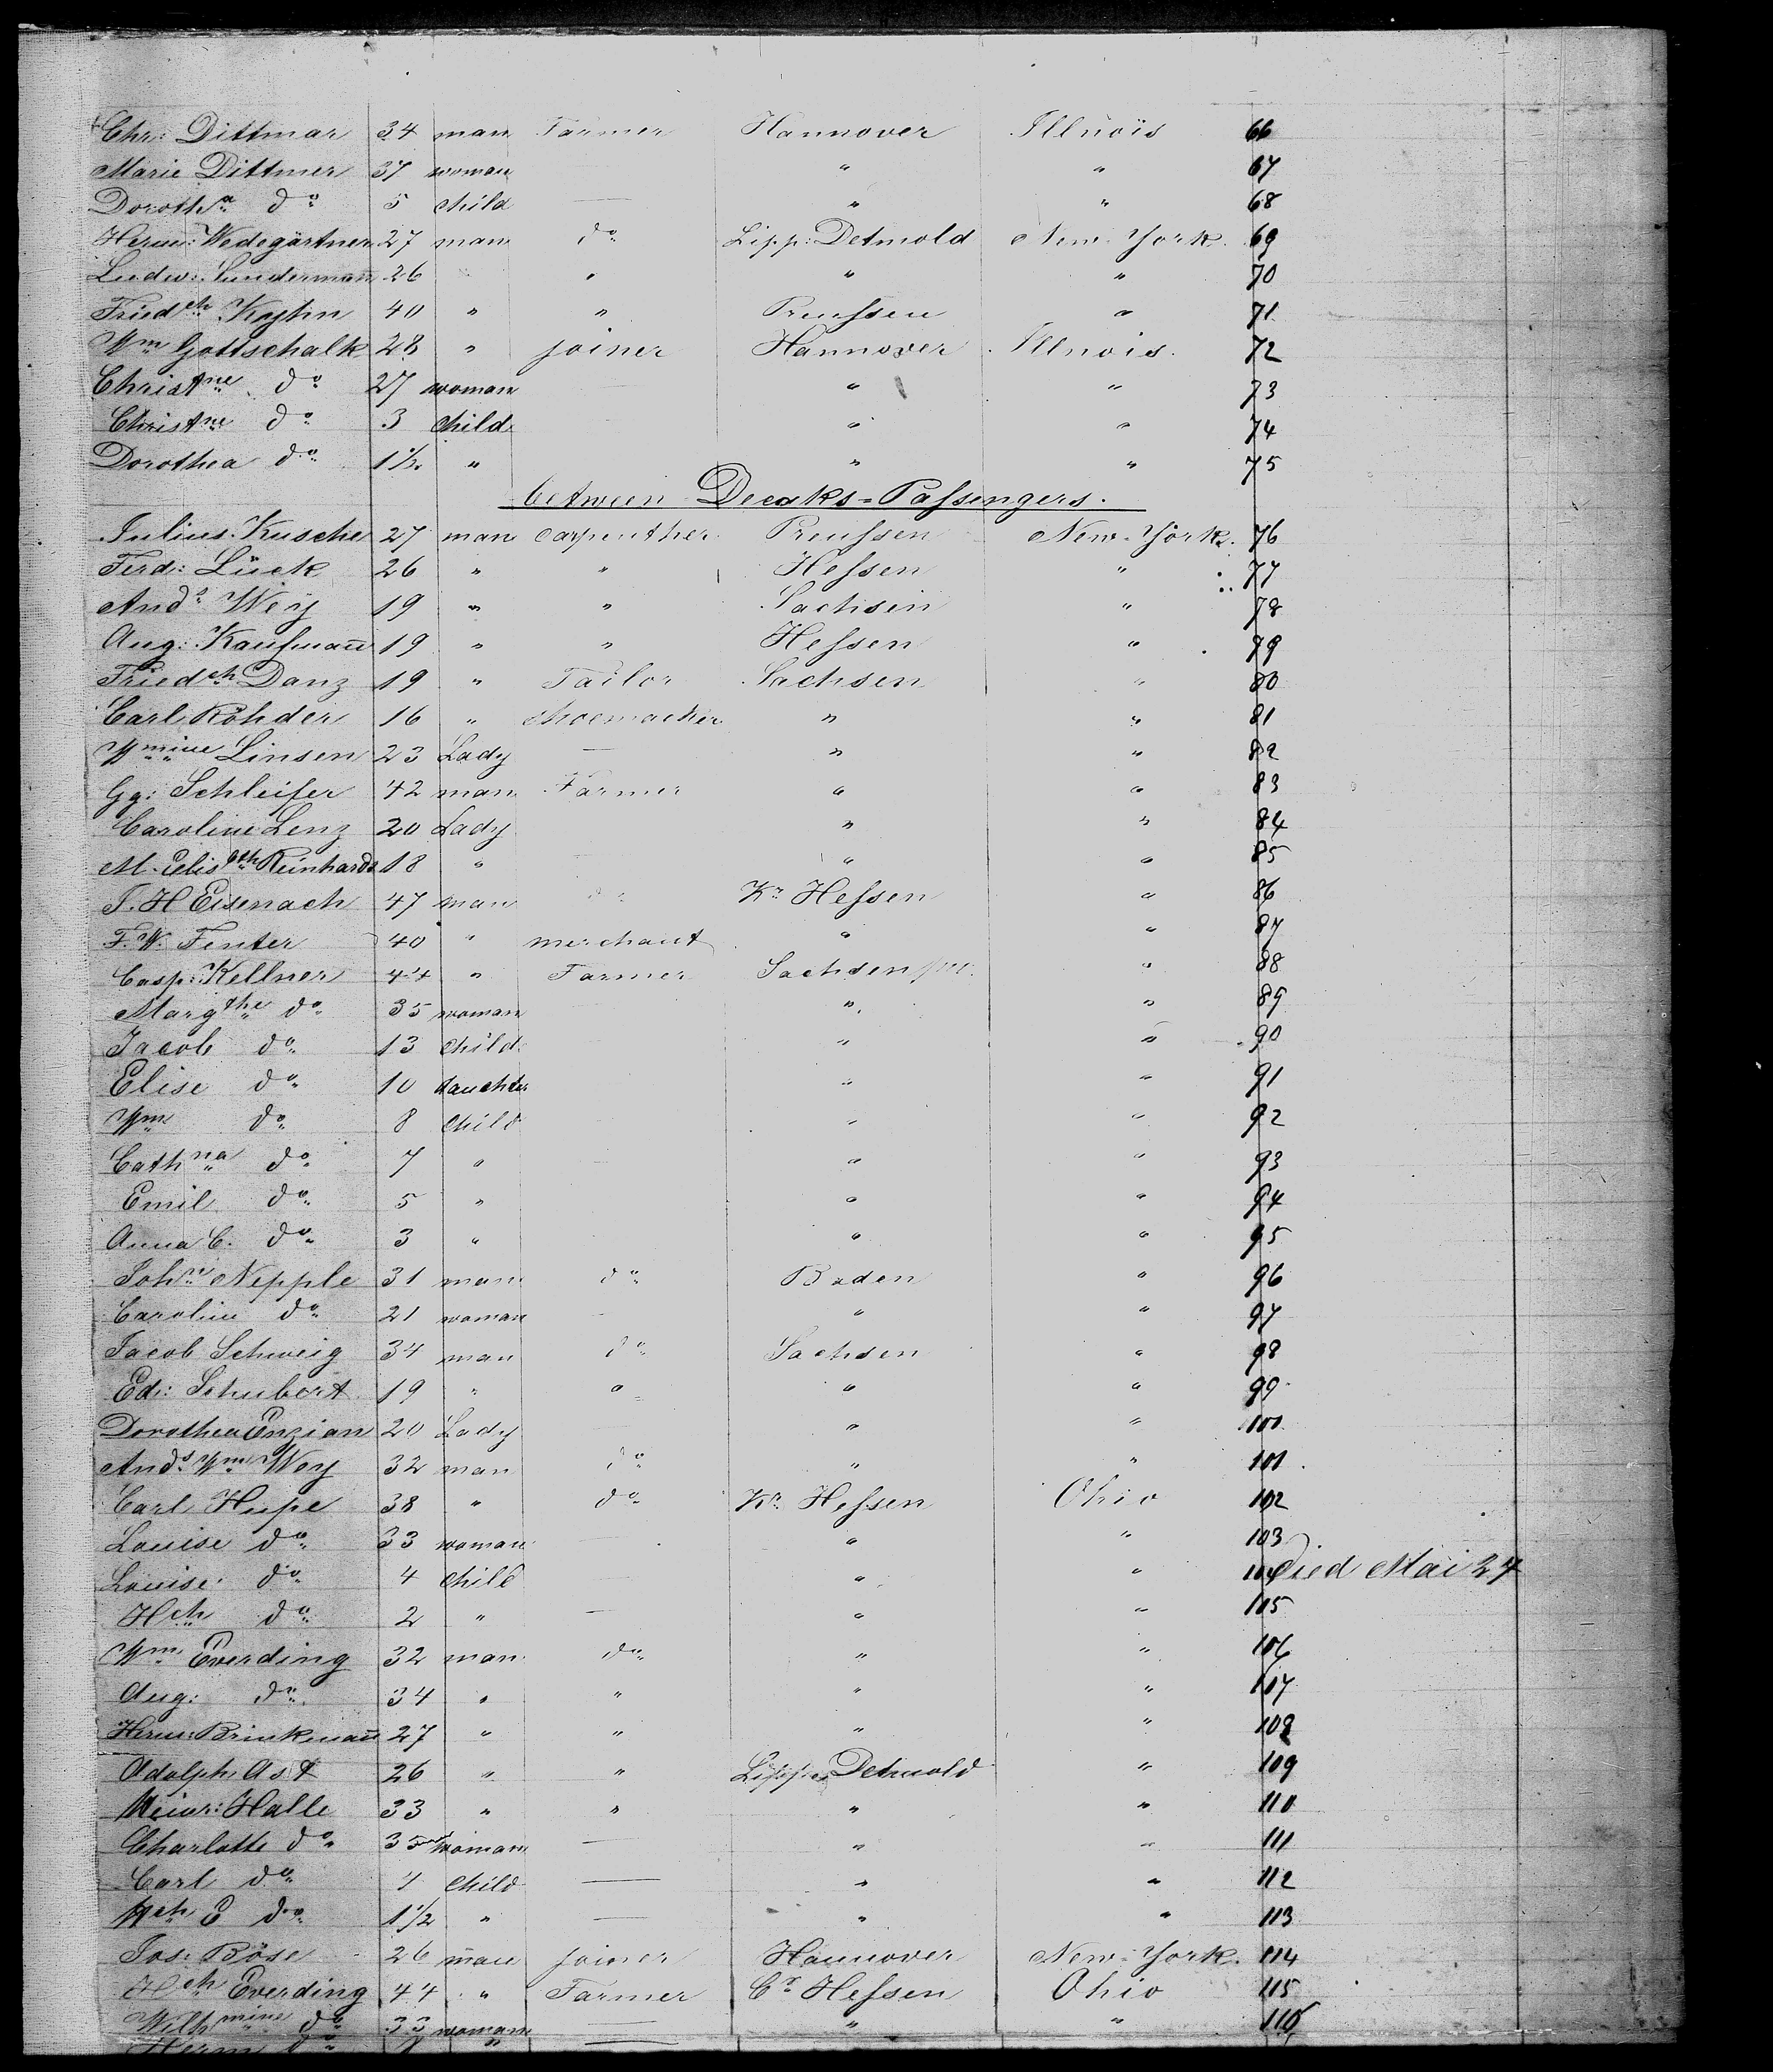 Chr: Dittmar 34 man Farmer Hannover Illnois 66
Marie Dittmer 37 woman " " 67
Doroth^a do 5 child — " " 68
Herm: Wedegärtner 27 man do Lipp: Detmold New-York. 69
Ludw: Sundermañ 26 " " " 70
Fried^ch 40 " " Preussen " 71
W^m Gottschalk 28 " joiner Hannover Illnois. 72
Christ^ne do 27 woman — " " 73
Christ^ne do 3 child — " " 74
Dorothea do 1½ " " " 75
between Decks=Passengers.
Julius Kusche 27 man carpenther Preussen New-York. 76
Ferd: Lück 26 " " Hessen " 77
And^s Wey 19 " " Sachsen " 78
Aug: Kaufmañ 19 " " Hessen " 79
Fried^ch Danz 19 " Tailor Sachsen " 80
Carl Röhder 16 " shoemacker " " 81
W^mine Linsen 23 Lady — " " 82
Gg: Schleifer 42 man Farmer " " 83
Caroline Lenz 20 Lady " " 84
M. Elis^bth Reinhardt 18 " " " 85
J. H Eisenach 47 man do K^r Hessen " 86
F. W. Fenter 40 " merchant " " 87
Casp: Kellner 44 " Farmer Sachsen " 88
Marg^the do 35 woman " " 89
Jacob do 13 child " " 90
Elise do 10 dauchter " " 91
W^m do 8 child " " 92
Cath^na do 7 " " " 93
Emil do 5 " " " 94
Anna C. do 3 " " " 95
Joh^n Nepple 31 man do Baden " 96
Carolin do 21 woman — " " 97
Jacob Schweig 34 man do Sachsen " 98
Ed: Schubert 19 " " " " 99
Dorothea Enzian 20 Lady — " " 100
And^s W^m Wey 32 man do " " 101
Carl Hupe 38 " do K^r Hessen Ohio 102
Louise do 33 woman — " " 103
Louise do 4 child — " " 104 died Mai 24
H^ch do 2 " — " " 105
W^m Everding 32 man do " " 106
Aug: do 34 " " " " 107
Herm: Brinkmañ 27 " " " " 108
Adolph Ast 26 " " Lippe Detmold " 109
Heinr: Halle 33 " " " " 110
Charlotte do 35 woman — " " 111
Carl do 4 child — " " 112
H^ch E do 1½ " — " " 113
Jos: Böse 26 man joiner Hannover New-York. 114
H^ch Everding 44 " Farmer C^r Hessen Ohio 115
Wilh^mine do 33 woman — " " 116
Herm do " —